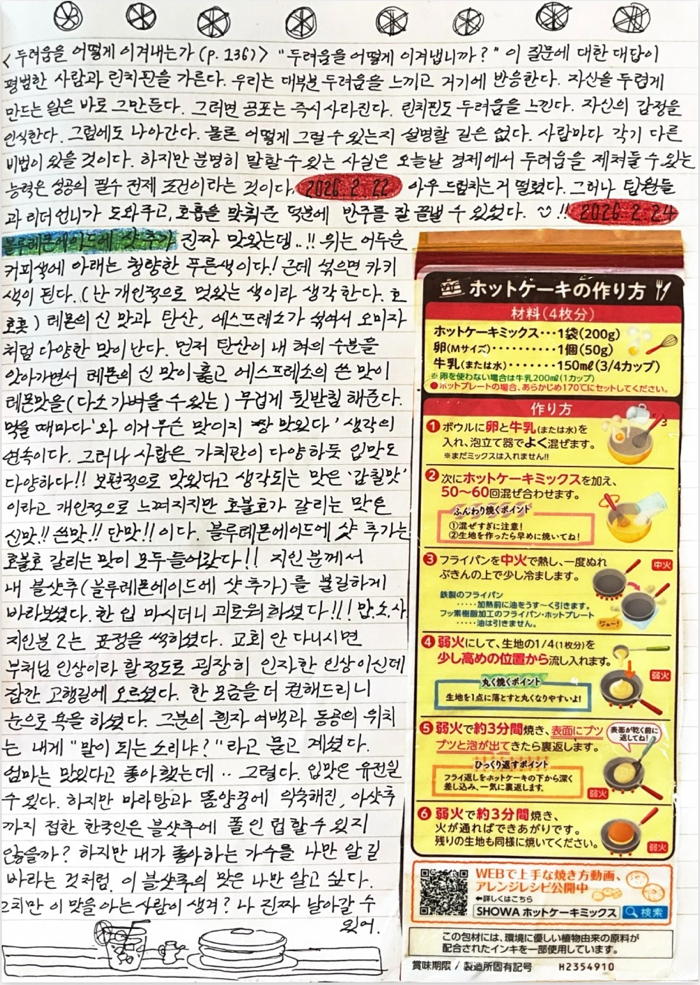 <두려움을 어떻게 이겨내는가 (p. 136)> "두려움을 어떻게 이겨냅니까?" 이 질문에 대한 대답이
평범한 사람과 린치핀을 가른다. 우리는 대부분 두려움을 느끼고 거기에 반응한다. 자신을 두렵게
만드는 일은 바로 그만둔다. 그러면 공포는 즉시 사라진다. 린치핀도 두려움을 느낀다. 자신의 감정을
인식한다. 그럼에도 나아간다. 물론 어떻게 그럴 수 있는지 설명할 길은 없다. 사람마다 각기 다른
비법이 있을 것이다. 하지만 분명히 말할 수 있는 사실은 오늘날 경제에서 두려움을 제쳐둘 수 있는
능력은 성공의 필수 전제 조건이라는 것이다. 2026 2. 22 아우 드럼치는거 떨렸다. 그러나 팀원들
과 리더 언니가 도와주고, 호흡을 맞춰준 덕분에 반주를 잘 끝낼 수 있었다. !! 2026 2. 24
블루레몬에이드에 샷 추가 진짜 맛있는뎅..!! 위는 어두운
커피색에 아래는 청량한 푸른색이다! 근데 섞으면 카키
색이 된다. (난 개인적으로 멋있는 색이라 생각한다. 호
호홋) 레몬의 신 맛과 탄산, 에스프레소가 섞여서 오미자
처럼 다양한 맛이 난다. 먼저 탄산이 내 혀의 수분을
앗아가면서 레몬의 신 맛이 훑고 에스프레소의 쓴 맛이
레몬맛을 (다소 가벼울 수 있는) 무겁게 뒷받침 해준다.
먹을 때마다 '와 이거 무슨 맛이지 짱 맛있다' 생각의
연속이다. 그러나 사람은 가치관이 다양하듯 입맛도
다양하다!! 보편적으로 맛있다고 생각되는 맛은 '감칠맛'
이라고 개인적으로 느껴지지만 호불호가 갈리는 맛은
신맛!! 쓴맛!! 단맛!! 이다. 블루레몬에이드에 샷 추가는
호불호 갈리는 맛이 모두 들어갔다!! 지인 분께서
내 블샷추 (블루레몬에이드에 샷 추가)를 불길하게
바라보셨다. 한 입 마시더니 괴로워 하셨다!!! 맙.소.사
지인분 2는 표정을 썩히셨다. 교회 안 다니시면
부처님 인상이라 할 정도로 굉장히 인자한 인상이신데
잠깐 고행길에 오르셨다. 한 모금을 더 권해드리니
눈으로 욕을 하셨다. 그분의 흰자 여백과 동공의 위치
는 내게 "말이 되는 소리냐?"라고 묻고 계셨다.
엄마는 맛있다고 좋아했는데 .. 그렇다. 입맛은 유전일
수 있다. 하지만 마라탕과 똠양꿍에 익숙해진, 아샷추
까지 접한 한국인은 블샷추에 폴 인 럽 할 수 있지
않을까? 하지만 내가 좋아하는 가수를 나만 알 길
바라는 것처럼, 이 블샷추의 맛은 나만 알고 싶다.
그치만 이 맛을 아는 사람이 생겨? 나 진짜 날아갈 수
있어.
ホットケーキの作り方
材料(4枚分)
ホットケーキミックス…1袋(200g)
卵(Mサイズ)………1個(50g)
牛乳(または水)………150ml(3/4カップ)
※卵を使わない場合は牛乳200ml(1カップ)
●ホットプレートの場合、あらかじめ170℃にセットしてください。
作り方
1 ボウルに卵と牛乳(または水)を
入れ、泡立て器でよく混ぜます。
※まだミックスは入れません!!
2 次にホットケーキミックスを加え、
50〜60回混ぜ合わせます。
ふんわり焼くポイント
①混ぜすぎに注意!
②生地を作ったら早めに焼いてね!
3 フライパンを中火で熱し、一度ぬれ
ぶきんの上で少し冷まします。
中火
鉄製のフライパン
……加熱前に油をうす〜く引きます。
フッ素樹脂加工のフライパン・ホットプレート
……油は引きません。
ジュー!
4 弱火にして、生地の1/4(1枚分)を
少し高めの位置から流し入れます。
丸く焼くポイント
生地を1点に落とすと丸くなりやすいよ!
弱火
5 弱火で約3分間焼き、表面にプツ
プツと泡が出てきたら裏返します。
表面が乾く前に
返してね!
ひっくり返すポイント
フライ返しをホットケーキの下から深く
差し込み、一気に裏返します。
弱火
6 弱火で約3分間焼き、
火が通ればできあがりです。
残りの生地も同様に焼いてください。
弱火
WEBで上手な焼き方動画、
アレンジレシピ公開中
詳しくはこちら
SHOWA ホットケーキミックス 検索
この包材には、環境に優しい植物由来の原料が
配合されたインキを一部使用しています。
賞味期限 / 製造所固有記号 H2354910